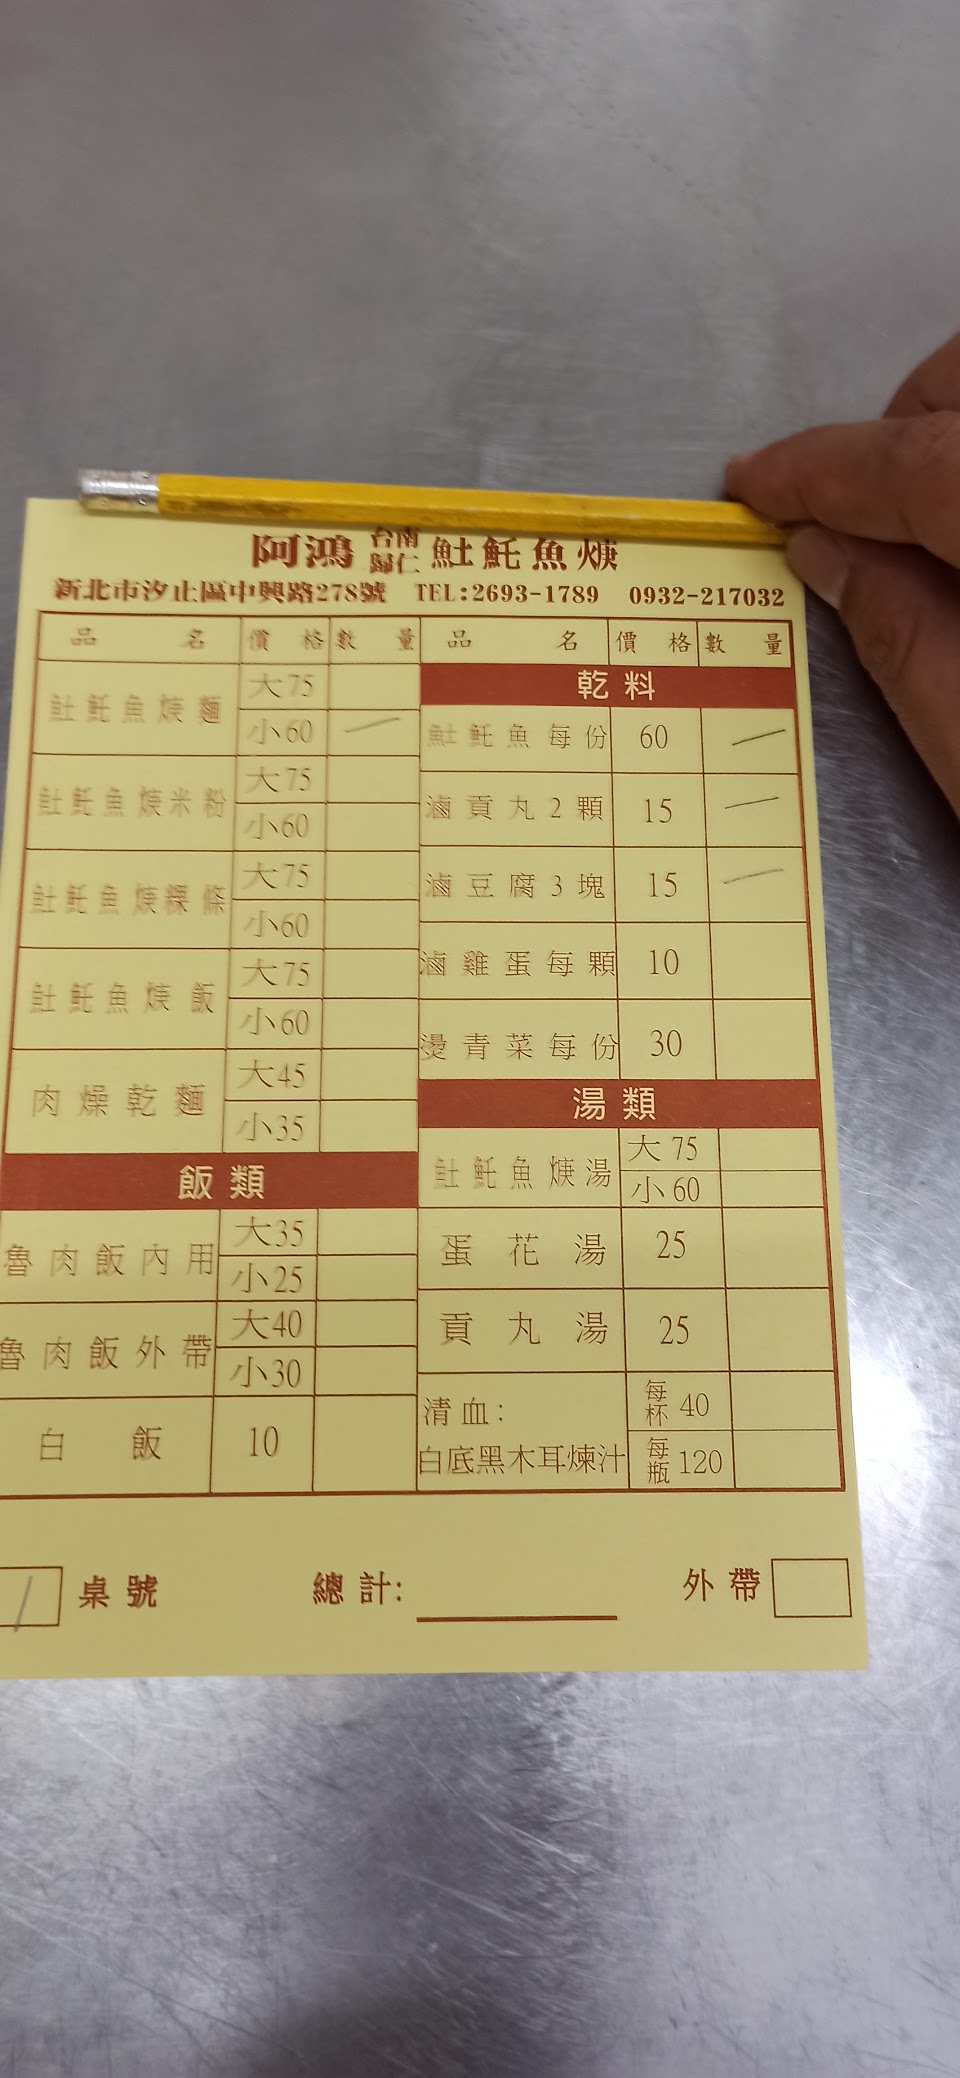 阿鴻 台南歸仁 魠魚焿
新北市汐止區中興路278號 TEL:2693-1789 0932-217032
品名 價格 數量 品名 價格 數量
魠魚焿麵 大75
小60 一
魠魚焿米粉 大75
小60
魠魚焿粿條 大75
小60
魠魚焿飯 大75
小60
肉燥乾麵 大45
小35
飯類
魯肉飯內用 大35
小25
魯肉飯外帶 大40
小30
白飯 10
乾料
魠魚每份 60 一
滷貢丸2顆 15 一
滷豆腐3塊 15 一
滷雞蛋每顆 10
燙青菜每份 30
湯類
魠魚焿湯 大75
小60
蛋花湯 25
貢丸湯 25
清血:
白底黑木耳煉汁
每杯 40
每瓶 120
1 桌號 總計: 外帶